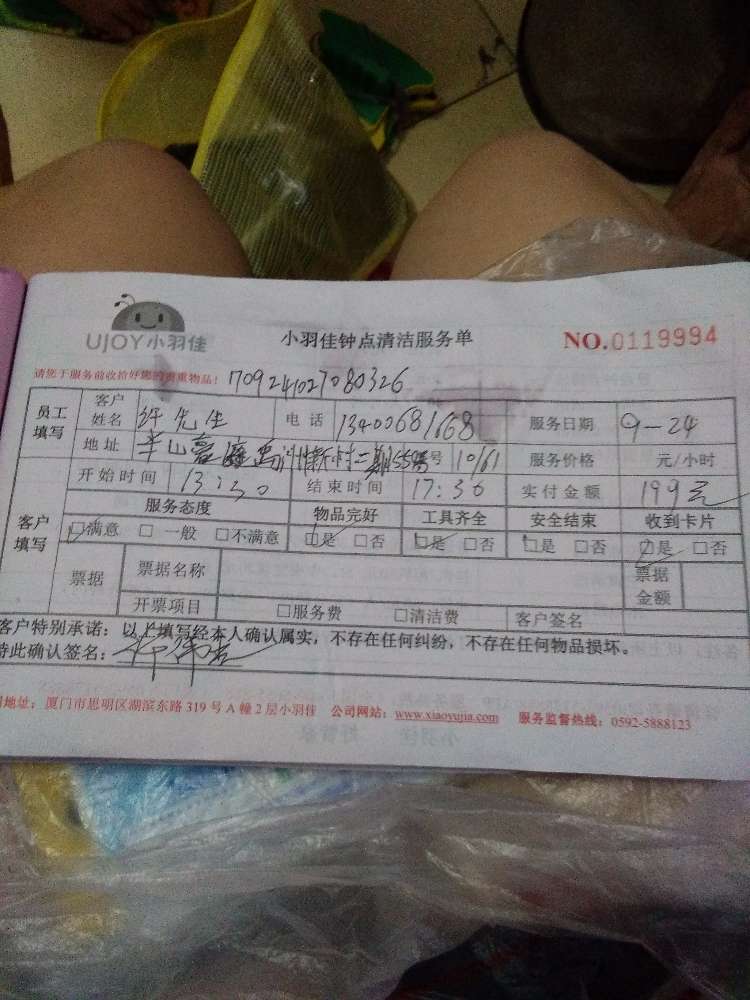 UJOY小羽佳
小羽佳钟点清洁服务单
NO.0119994
请您于服务前收拾好您的贵重物品！
709241027080326
员工填写 客户姓名 许先生 电话 13400681668 服务日期 9-24
地址 半山 二期 号 10/61 服务价格 元/小时
客户填写 开始时间 13:30 结束时间 17:30 实付金额 199元
服务态度 物品完好 工具齐全 安全结束 收到卡片
□满意 □一般 □不满意 □是 □否 □是 □否 □是 □否 □是 □否
票据 票据名称 票据金额
开票项目 □服务费 □清洁费 客户签名
客户特别承诺：以上填写经本人确认属实，不存在任何纠纷，不存在任何物品损坏。
特此确认签名：
地址：厦门市思明区湖滨东路319号A幢2层小羽佳 公司网站：www.xiaoyujia.com 服务监督热线：0592-5888123